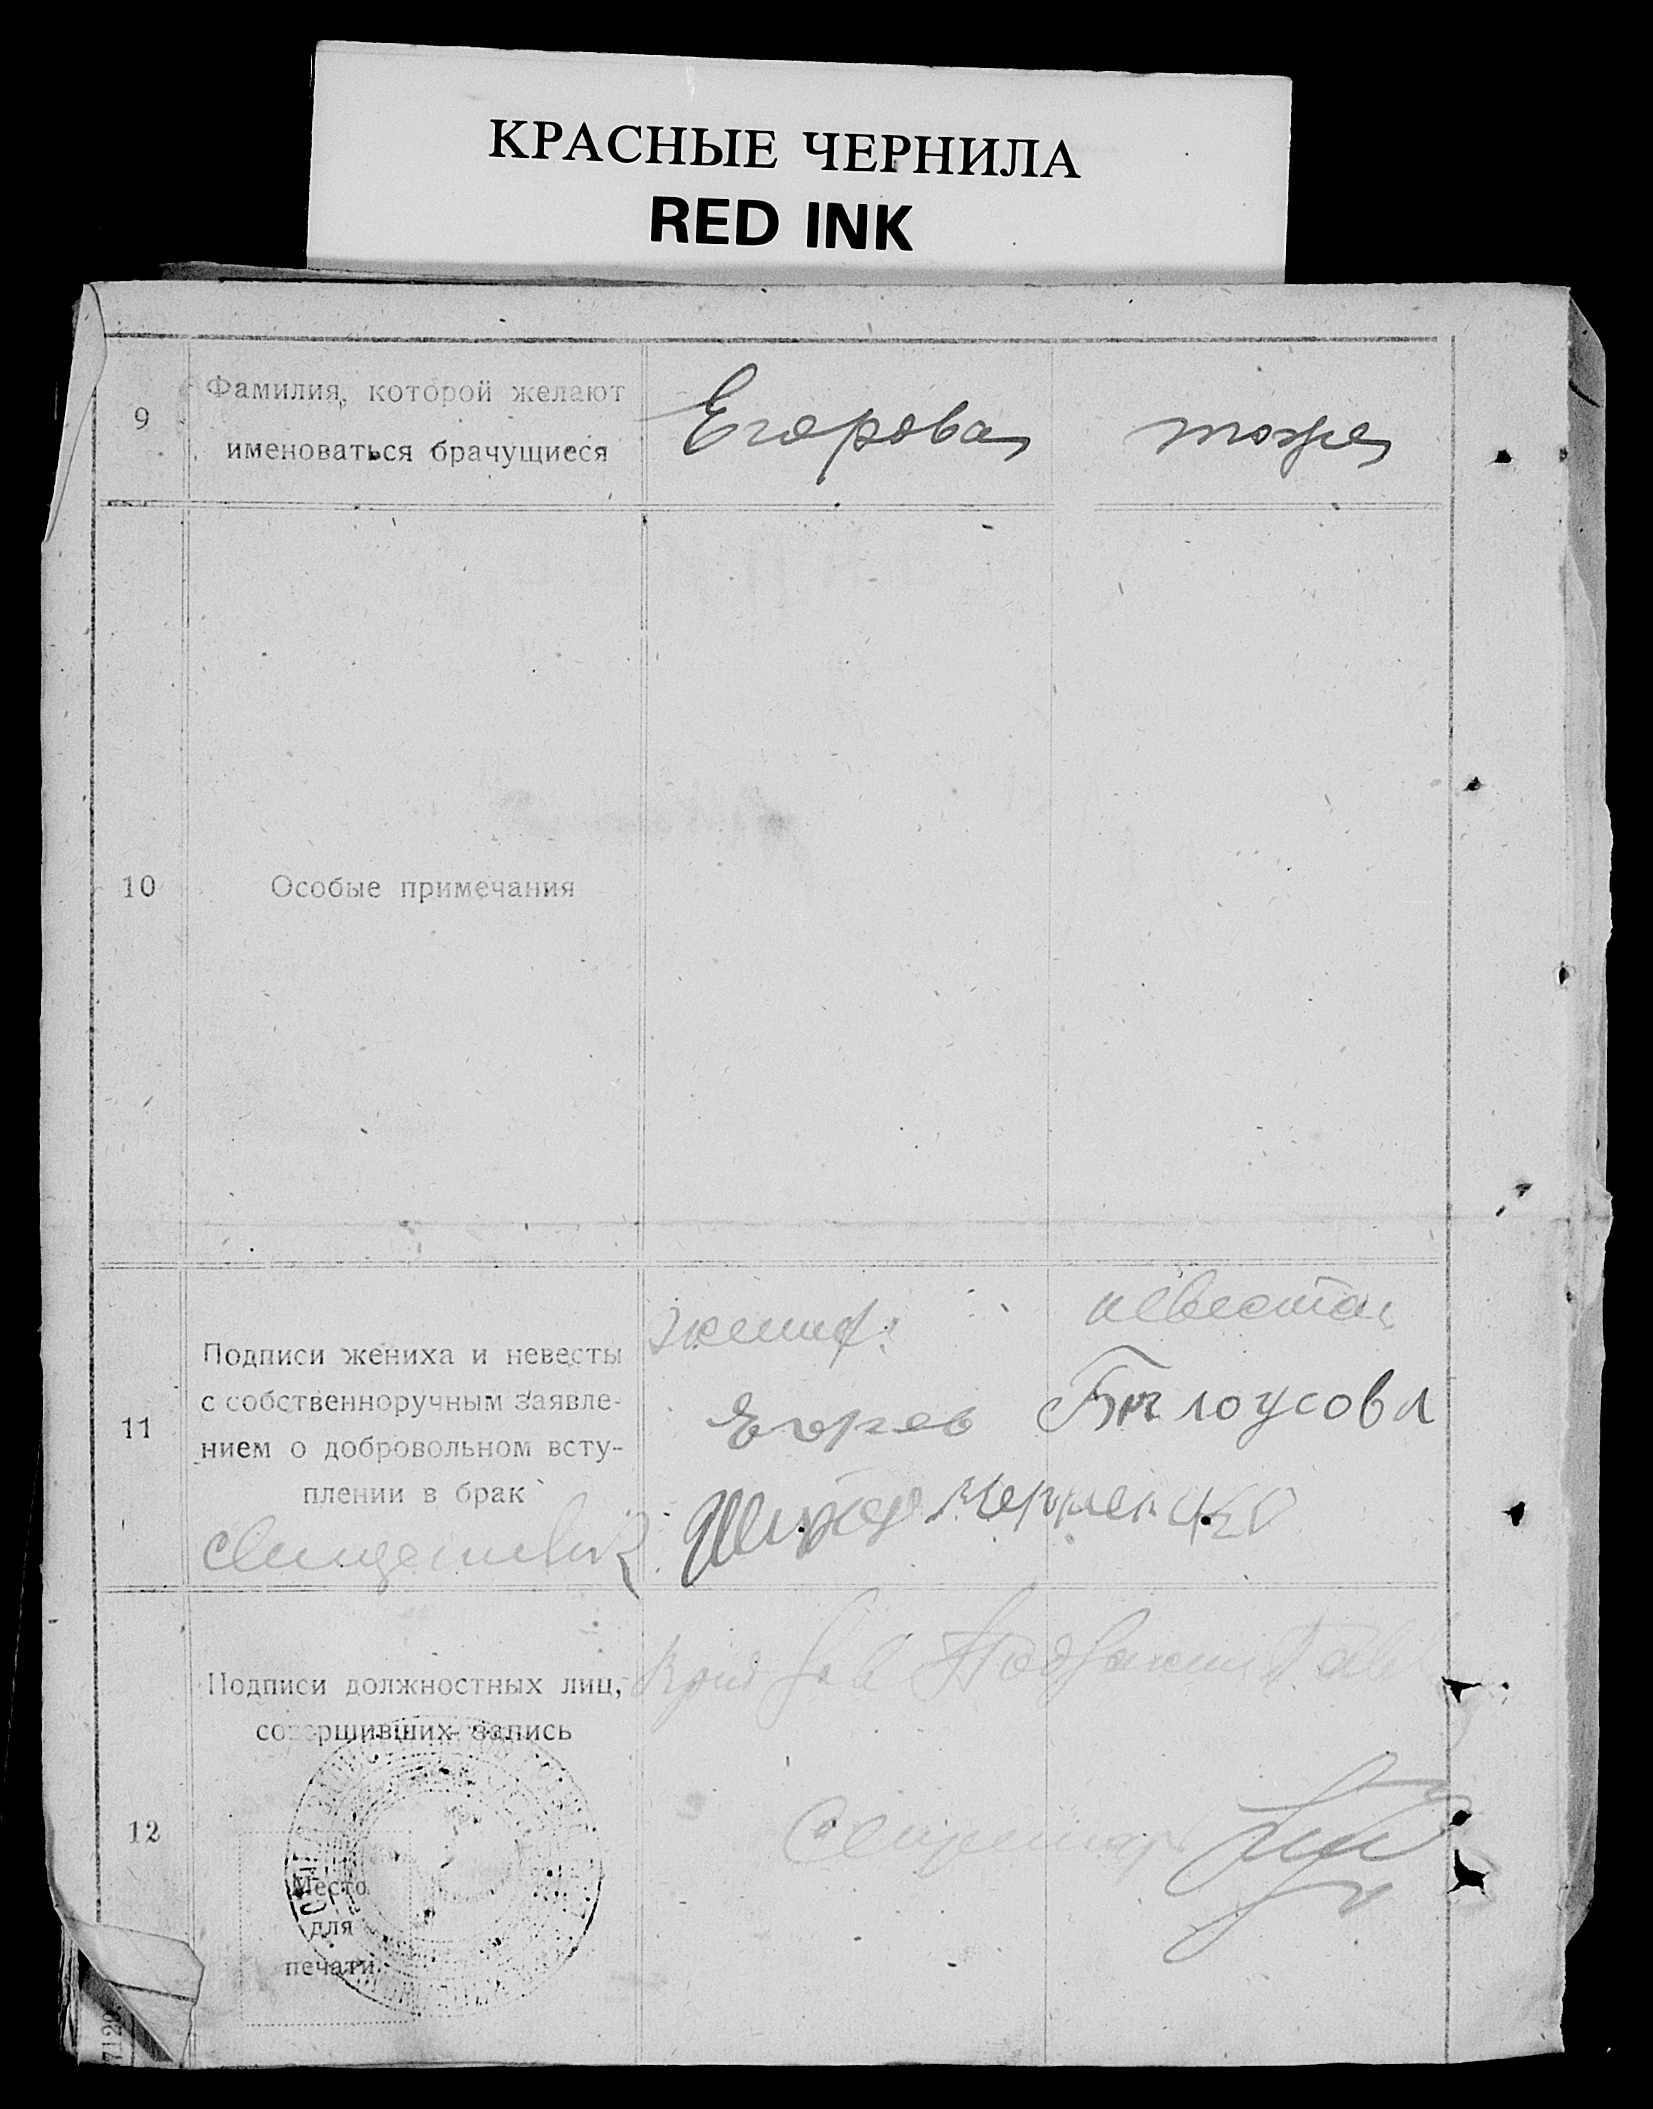 КРАСНЫЕ ЧЕРНИЛА
RED INK
9
Фамилия, которой желают
именоваться брачущиеся
Егорова
тоже
10
Особые примечания
11
Подписи жениха и невесты
с собственноручным заявле-
нием о добровольном всту-
плении в брак
жених
невеста
Егоров
Белоусова
12
Подписи должностных лиц,
совершивших запись
Секретарь
Место
для
печати